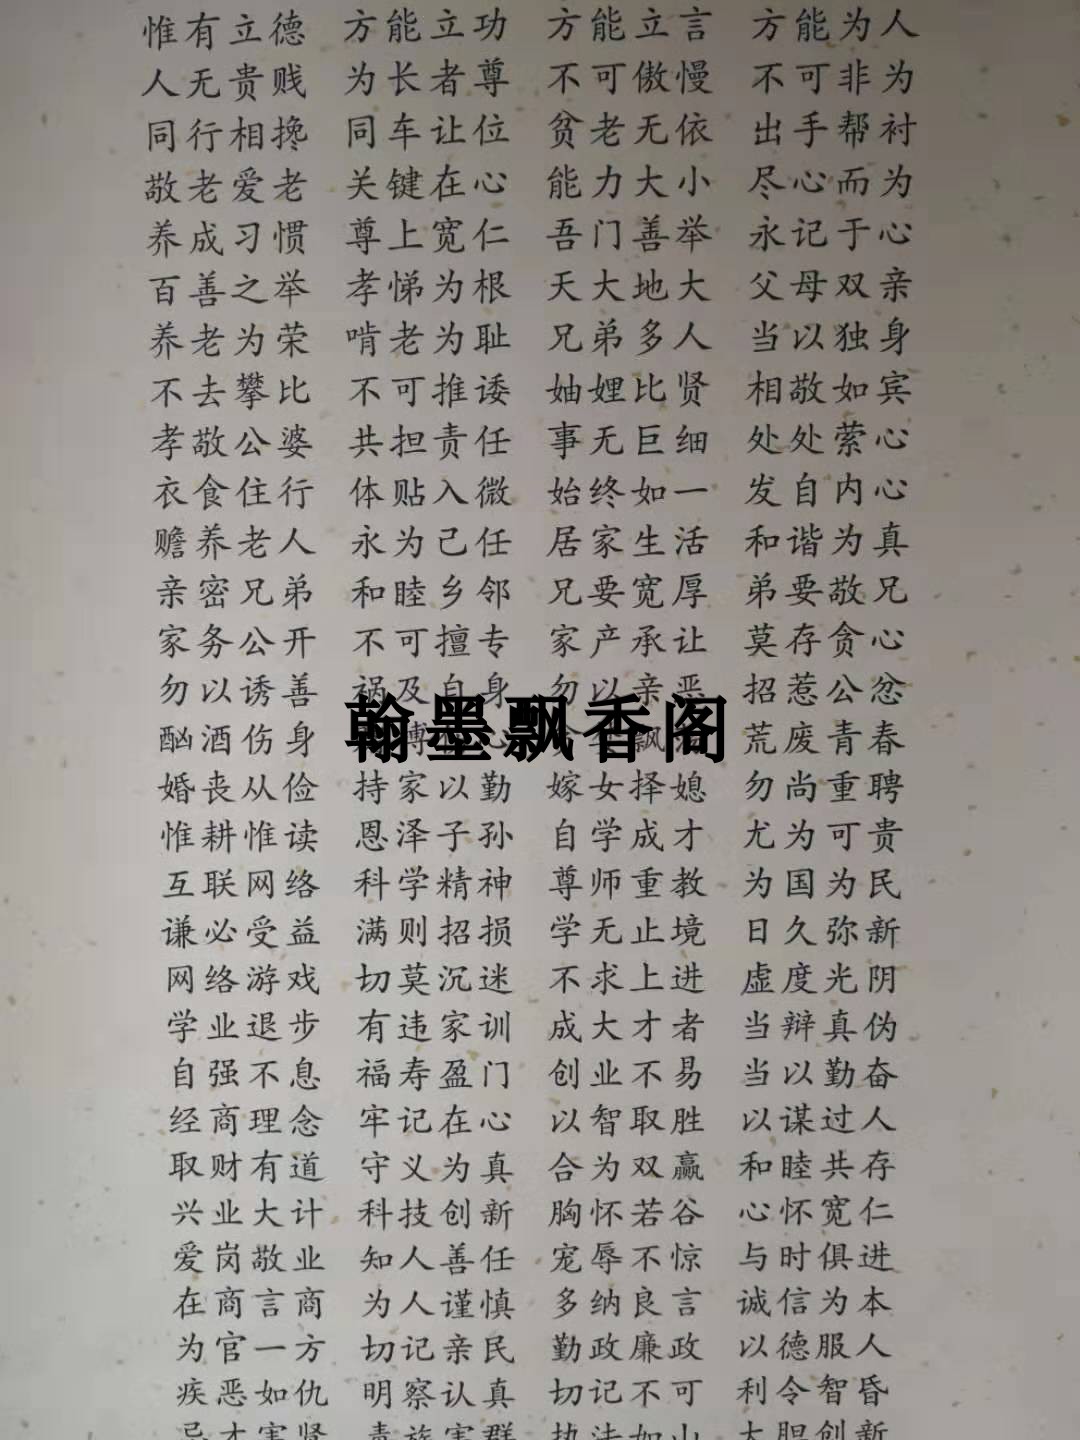 惟有立德 方能立功 方能立言 方能为人
人无贵贱 为长者尊 不可傲慢 不可非为
同行相搀 同车让位 贫老无依 出手帮衬
敬老爱老 关键在心 能力大小 尽心而为
养成习惯 尊上宽仁 吾门善举 永记于心
百善之举 孝悌为根 天大地大 父母双亲
养老为荣 啃老为耻 兄弟多人 当以独身
不去攀比 不可推诿 妯娌比贤 相敬如宾
孝敬公婆 共担责任 事无巨细 处处萦心
衣食住行 体贴入微 始终如一 发自内心
赡养老人 永为己任 居家生活 和谐为真
亲密兄弟 和睦乡邻 兄要宽厚 弟要敬兄
家务公开 不可擅专 家产承让 莫存贪心
勿以诱善 祸及自身 勿以亲恶 招惹公忿
翰墨飘香阁
酗酒伤身 荒废青春
婚丧从俭 持家以勤 嫁女择媳 勿尚重聘
惟耕惟读 恩泽子孙 自学成才 尤为可贵
互联网络 科学精神 尊师重教 为国为民
谦必受益 满则招损 学无止境 日久弥新
网络游戏 切莫沉迷 不求上进 虚度光阴
学业退步 有违家训 成大才者 当辩真伪
自强不息 福寿盈门 创业不易 当以勤奋
经商理念 牢记在心 以智取胜 以谋过人
取财有道 守义为真 合为双赢 和睦共存
兴业大计 科技创新 胸怀若谷 心怀宽仁
爱岗敬业 知人善任 宠辱不惊 与时俱进
在商言商 为人谨慎 多纳良言 诚信为本
为官一方 切记亲民 勤政廉政 以德服人
疾恶如仇 明察认真 切记不可 利令智昏
忌才害贤 害群 执法如山 大胆创新